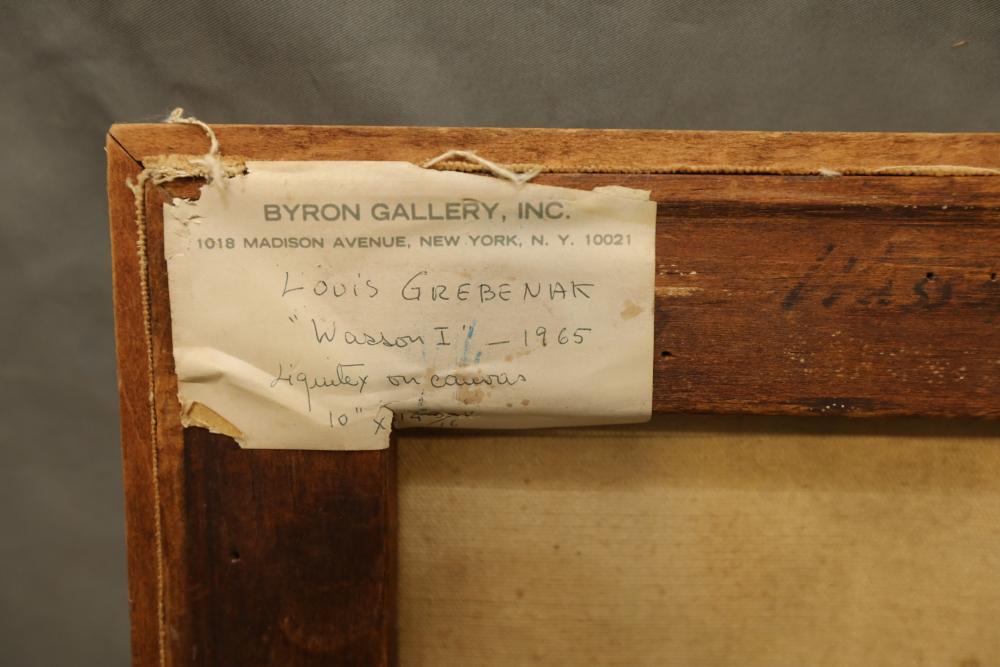 BYRON GALLERY, INC.
1018 MADISON AVENUE, NEW YORK, N. Y. 10021
LOUIS GREBENAK
"Wasson I" – 1965
Liquitex on canvas
10" x